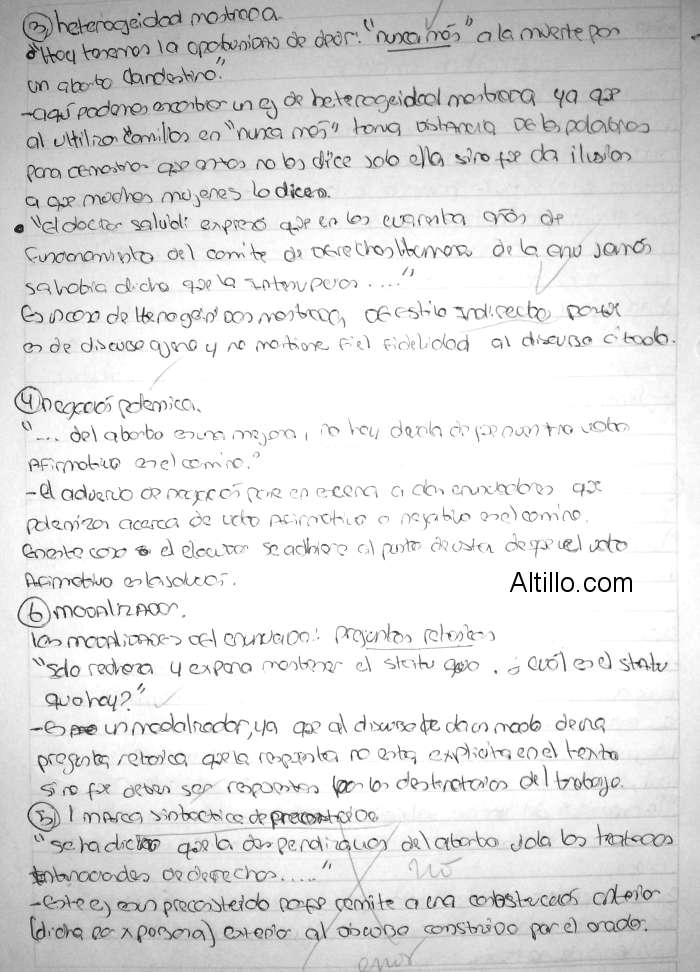 ③ heterogeidad mostrada.
"Hoy tenemos la oportunidad de decir: "nunca más" a la muerte por
un aborto clandestino."
- aquí podemos encontrar un ej de heterogeidad mostrada ya que
al utilizar comillas en "nunca más" toma distancia de las palabras
para demostrar que estas no las dice solo ella sino que da ilusion
a que muchas mujeres lo dicen.
• "el doctor expresó que en los cuarenta años de
funcionamiento del comite de derechos Humanos de la onu jamás
se había dicho que la ....."
Es un caso de mostrada, de estilo indirecto porque
es de discurso ajeno y no mantiene fiel fidelidad al discurso citado.
④ negación polemica.
"... del aborto es una mejora, no hay duda de que nuestro voto
Afirmativo es el camino."
- el adverbio de negación pone en escena a dos enunciadores que
polemizan acerca de voto Afirmativo o negativo es el camino.
En este caso el locutor se adhiere al punto de vista de que el voto
Afirmativo es la solución.
⑥ MODALIZADOR.
las modalidades del enunciado: preguntas retoricas
"Solo rechaza y mantener el statu quo. ¿cuál es el statu
quo hoy?"
- Es un modalizador, ya que al discurso le da un modo de una
pregunta retorica que la respuesta no esta explicita en el texto
sino que deben ser respuestas por los destinatarios del trabajo.
⑤ 1 marca sintactica de preconstruido
"se ha dicho que la del aborto viola los tratados
de derechos....."
no
- Este ej es un preconstruido porque remite a una construcción anterior
(dicha por x persona) exterior al discurso construido por el orador.
error
Altillo.com